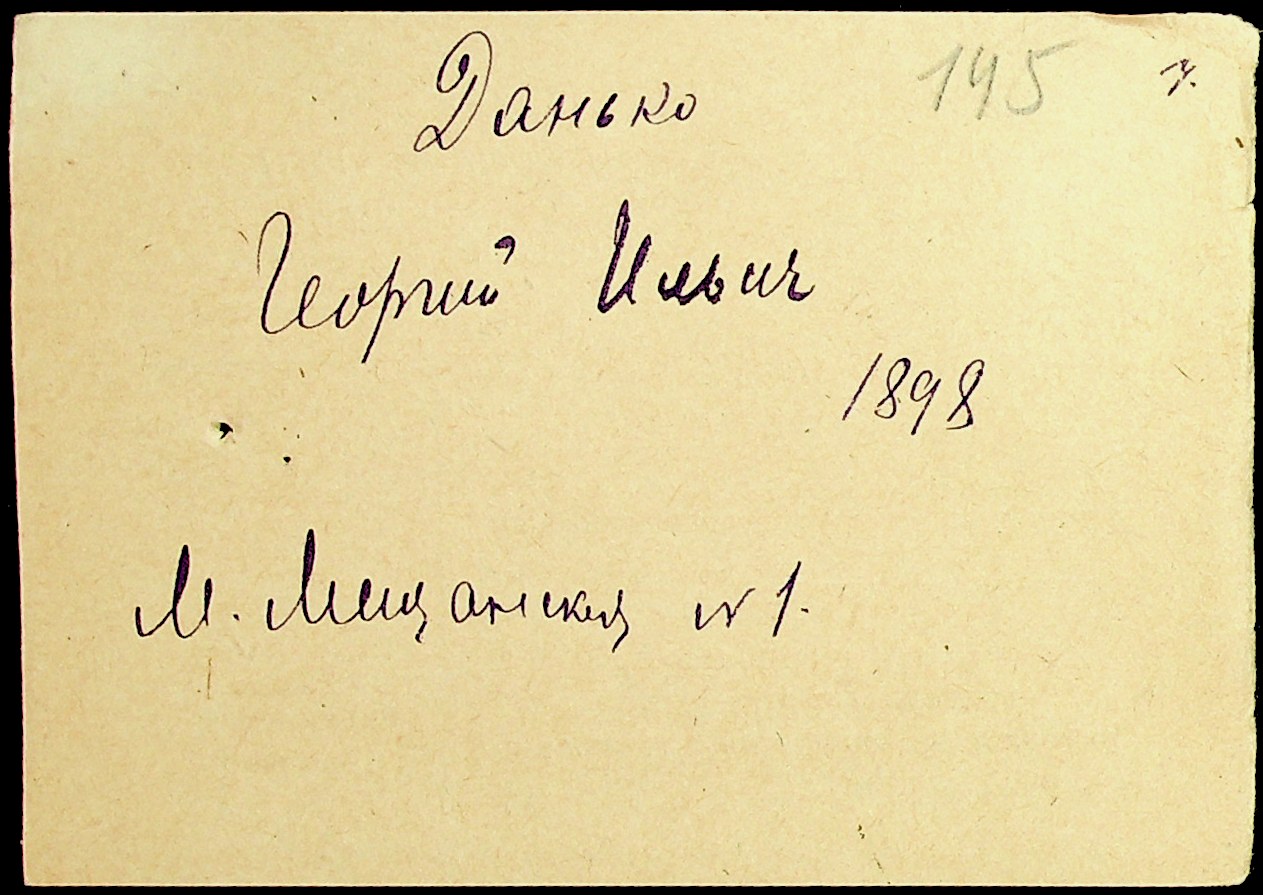 Данько 145
Георгий Ильич
1898
М. Мещанская № 1.